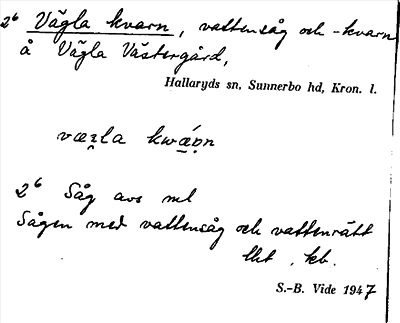 2⁶ Vägla kvarn, vattensåg och -kvarn
å Vägla Västergård,
Hallaryds sn, Sunnerbo hd, Kron. l.
kwǽ
2⁶ Såg avs ml
Sågen med vattensåg och vattenrätt
kb.
S.-B. Vide 1947